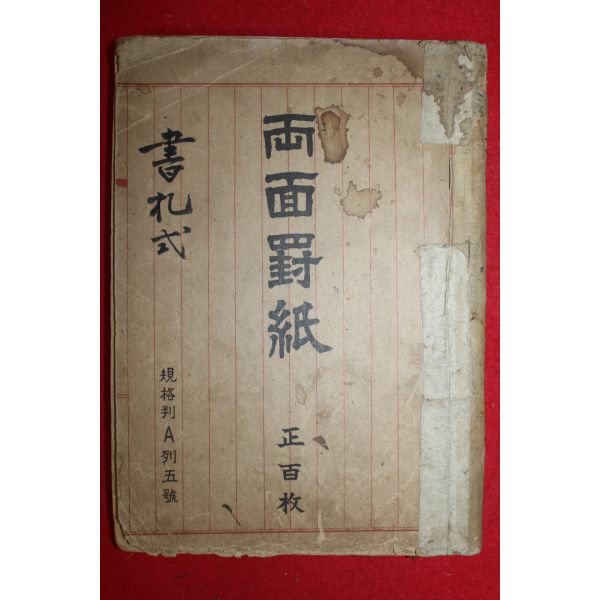 両面罫紙
正百枚
書札式
規格判A列五號